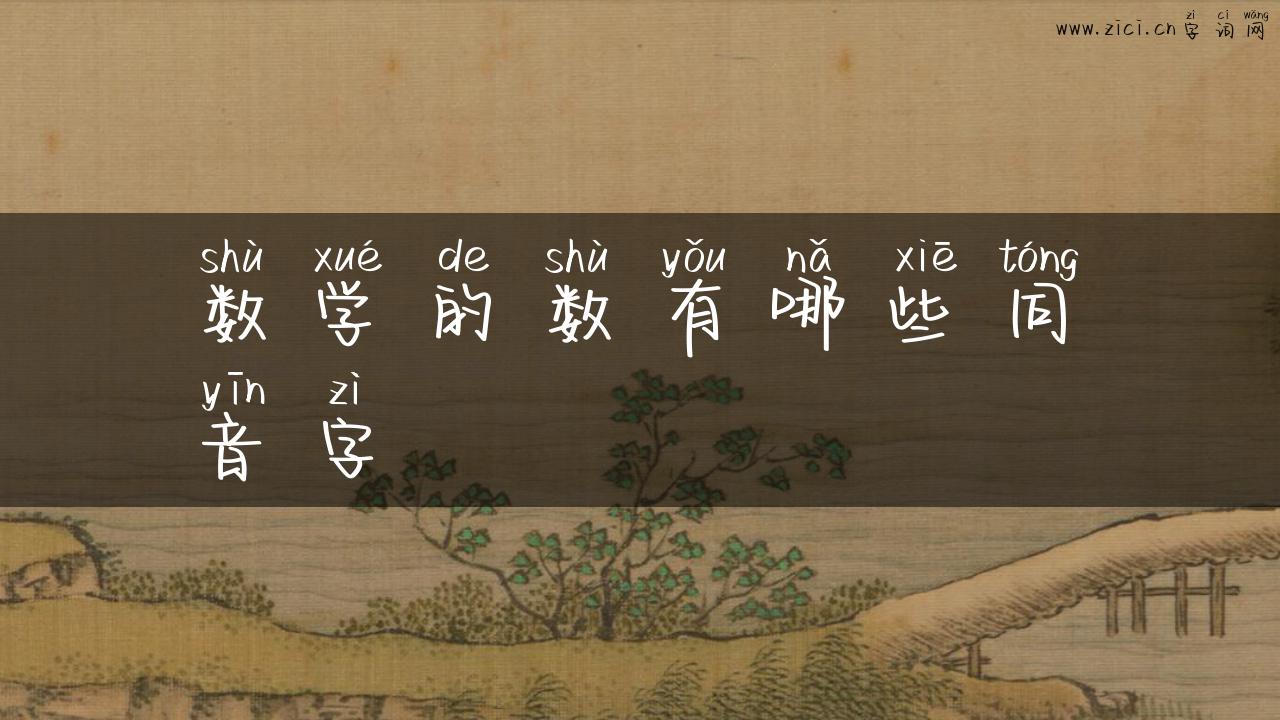 zì cí wǎng
www.zici.cn 字 词 网
shù xué de shù yǒu nǎ xiē tóng
数 学 的 数 有 哪 些 同
yīn zì
音 字